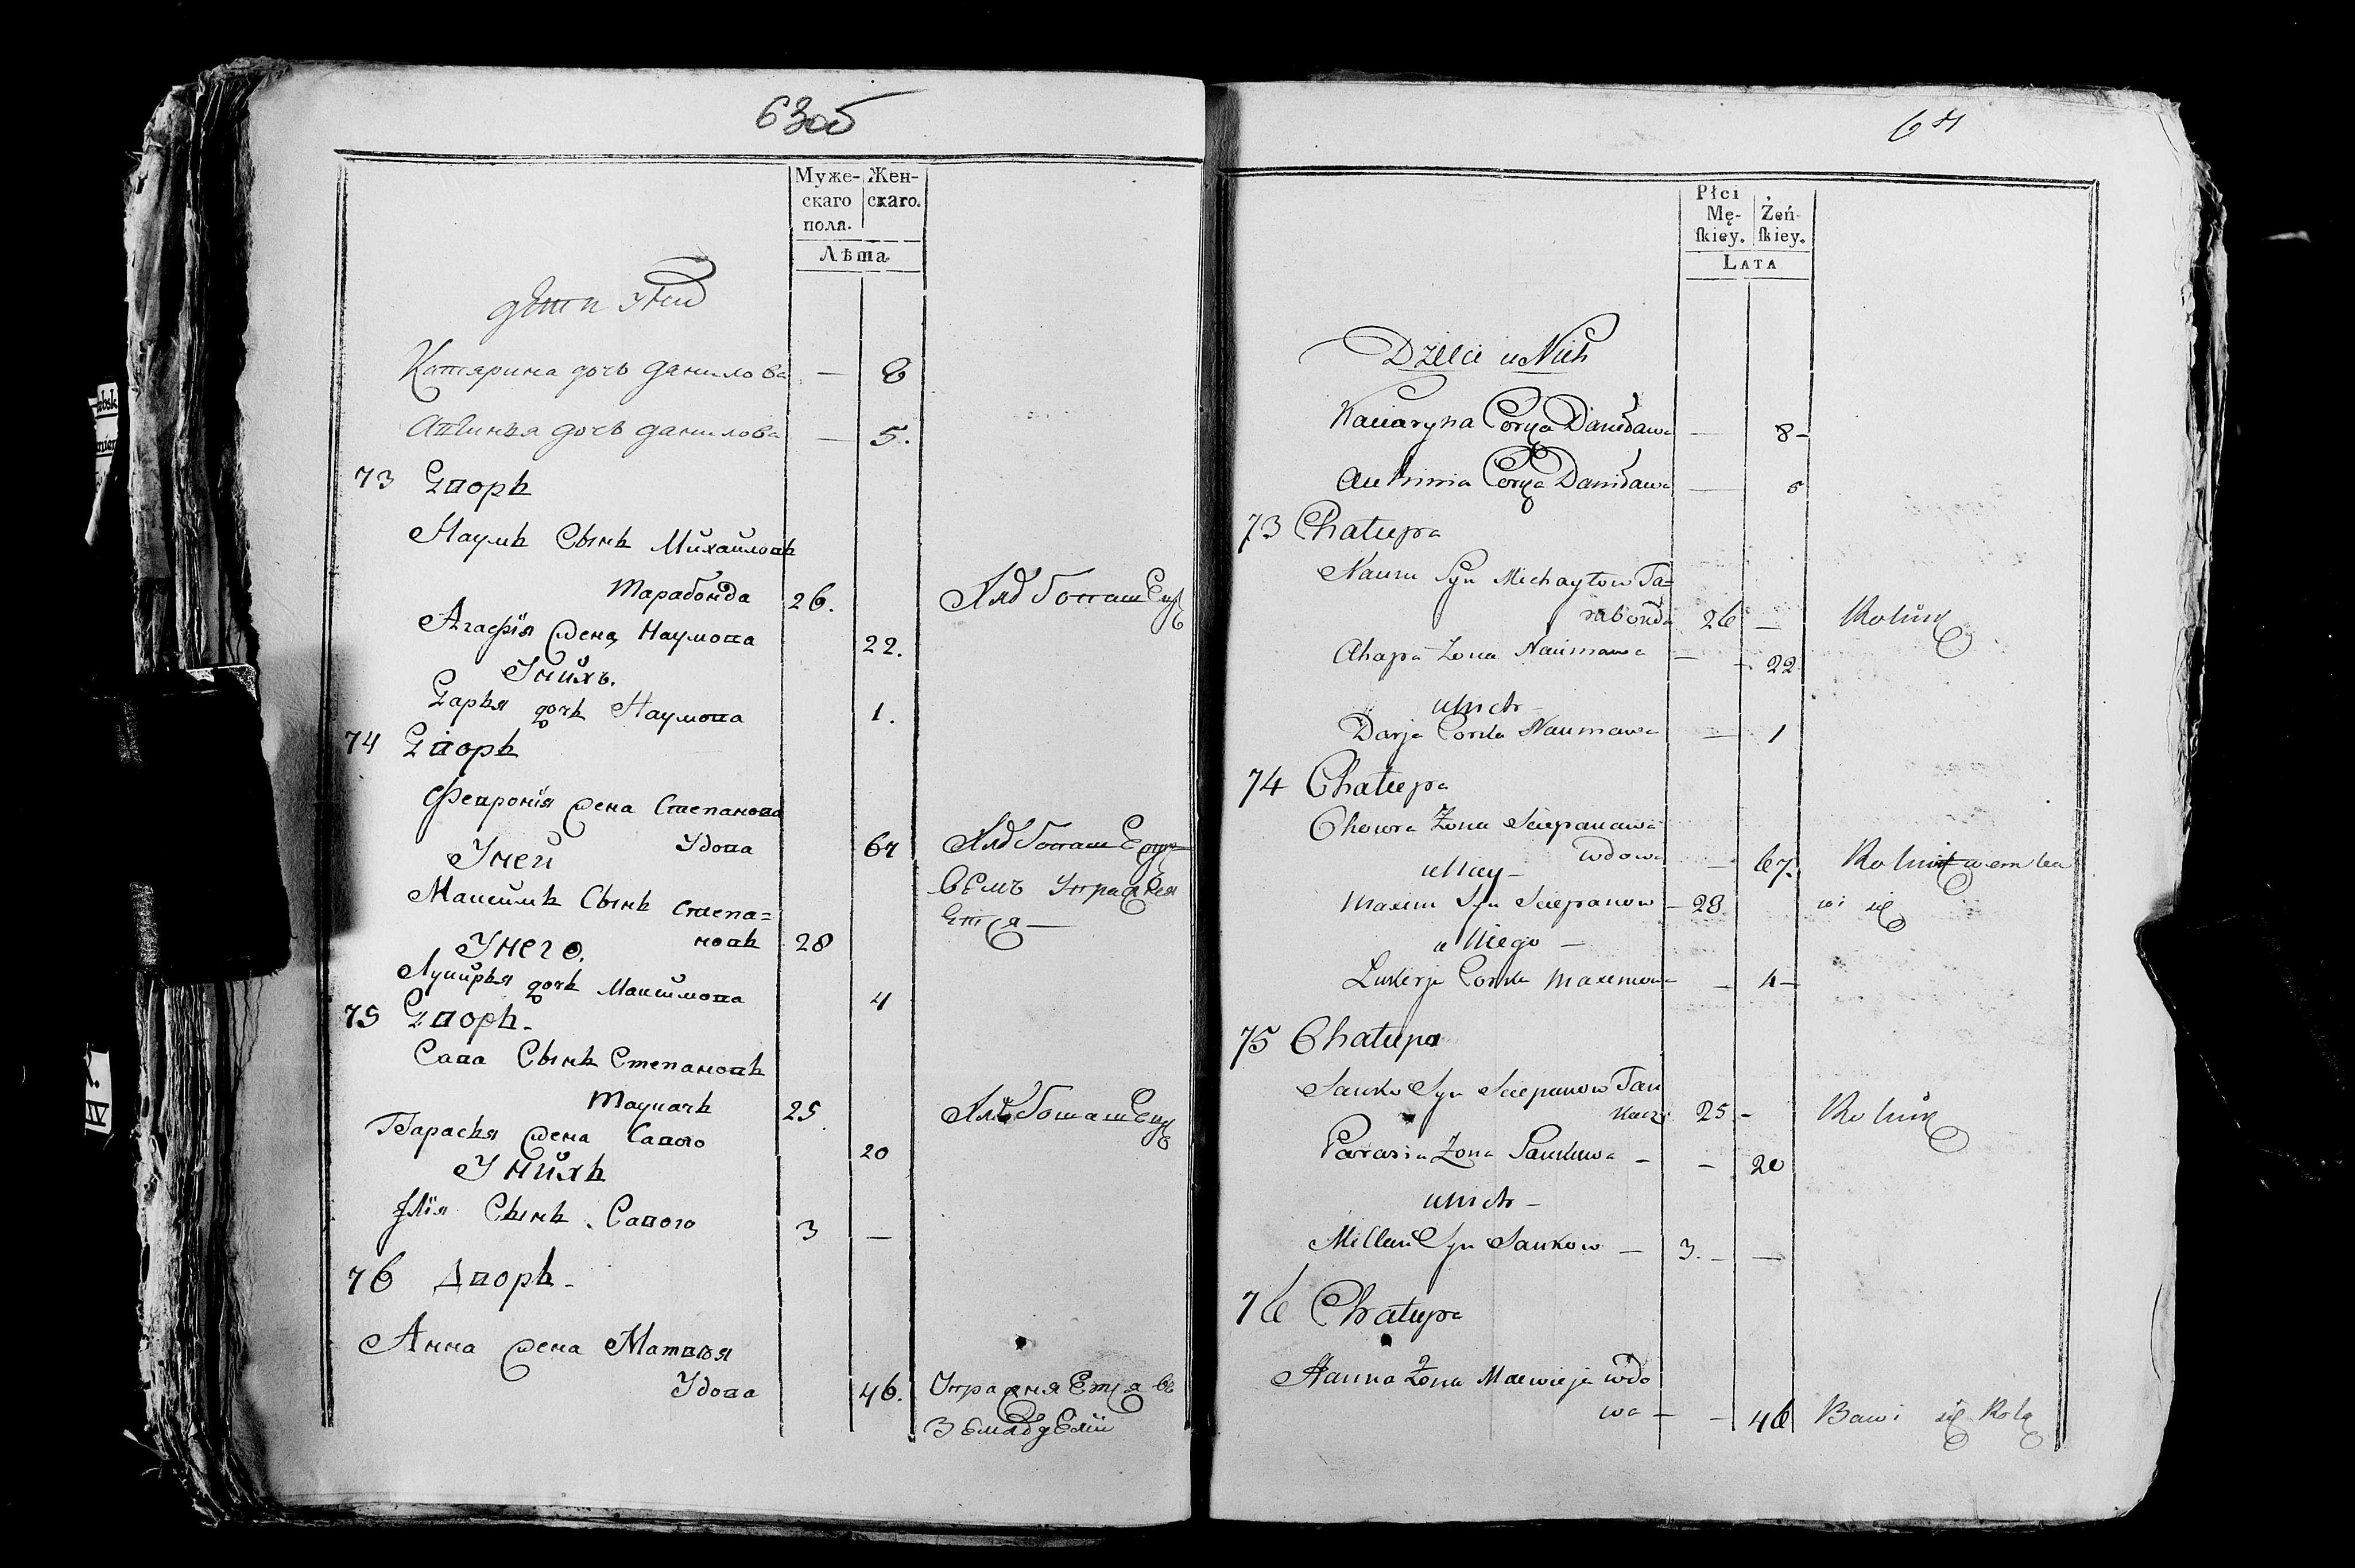 63об
Муже-
скаго
пола.
Жен-
скаго.
Лѣта
Дѣти ихъ
Катярина дочь данилова — 8
дочь данилова — 5.
73 Дворъ
Наумъ Сынъ Михайловъ
Тарабонда 26.
Агафїя жена Наумова 22.
У нихъ.
Дарья дочь Наумова 1.
74 Дворъ
Феврония жена Степанова
Удова 67
У ней
Максимъ Сынъ Степа=
новъ 28
У него.
Лукирья дочь Максимова 4
75 Дворъ.
Сава Сынъ Степановъ
Ткачъ 25.
Парасья жена Савого 20
У нихъ
Сынъ Савого 3 —
76 Дворъ.
Анна жена Матвья
Удова 46. Упражняется въ
Земледелїи
64
Płci
Mę-
skiey.
Żeń-
skiey.
LATA
Dzieci u Nich
Kaciaryna Corka Daniłowa — 8 —
Corka Daniłowa — 5
73 Chałupa
Naum Syn Michayłow Ta=
rabonda 26 — Rolnik
Ahapa Zona Naumowa — 22
u Nich —
Darja Corka Naumowa — 1
74 Chałupa
Chowra Zona Sciepanawa
wdowa — 67.
u Niey —
Maxim Syn Sciepanow — 28
u Niego —
Lukirja Corka Maximowa — 4 —
75 Chałupa
Sawka Syn Sciepanow
25 — Rolnik
Parasia Zona Sawkowa — — 20
u Nich —
Syn Sawkow — 3. — —
76 Chałupa
Hanna Zona Macwieja wdo
wa — — 46 Bawi się Rolą